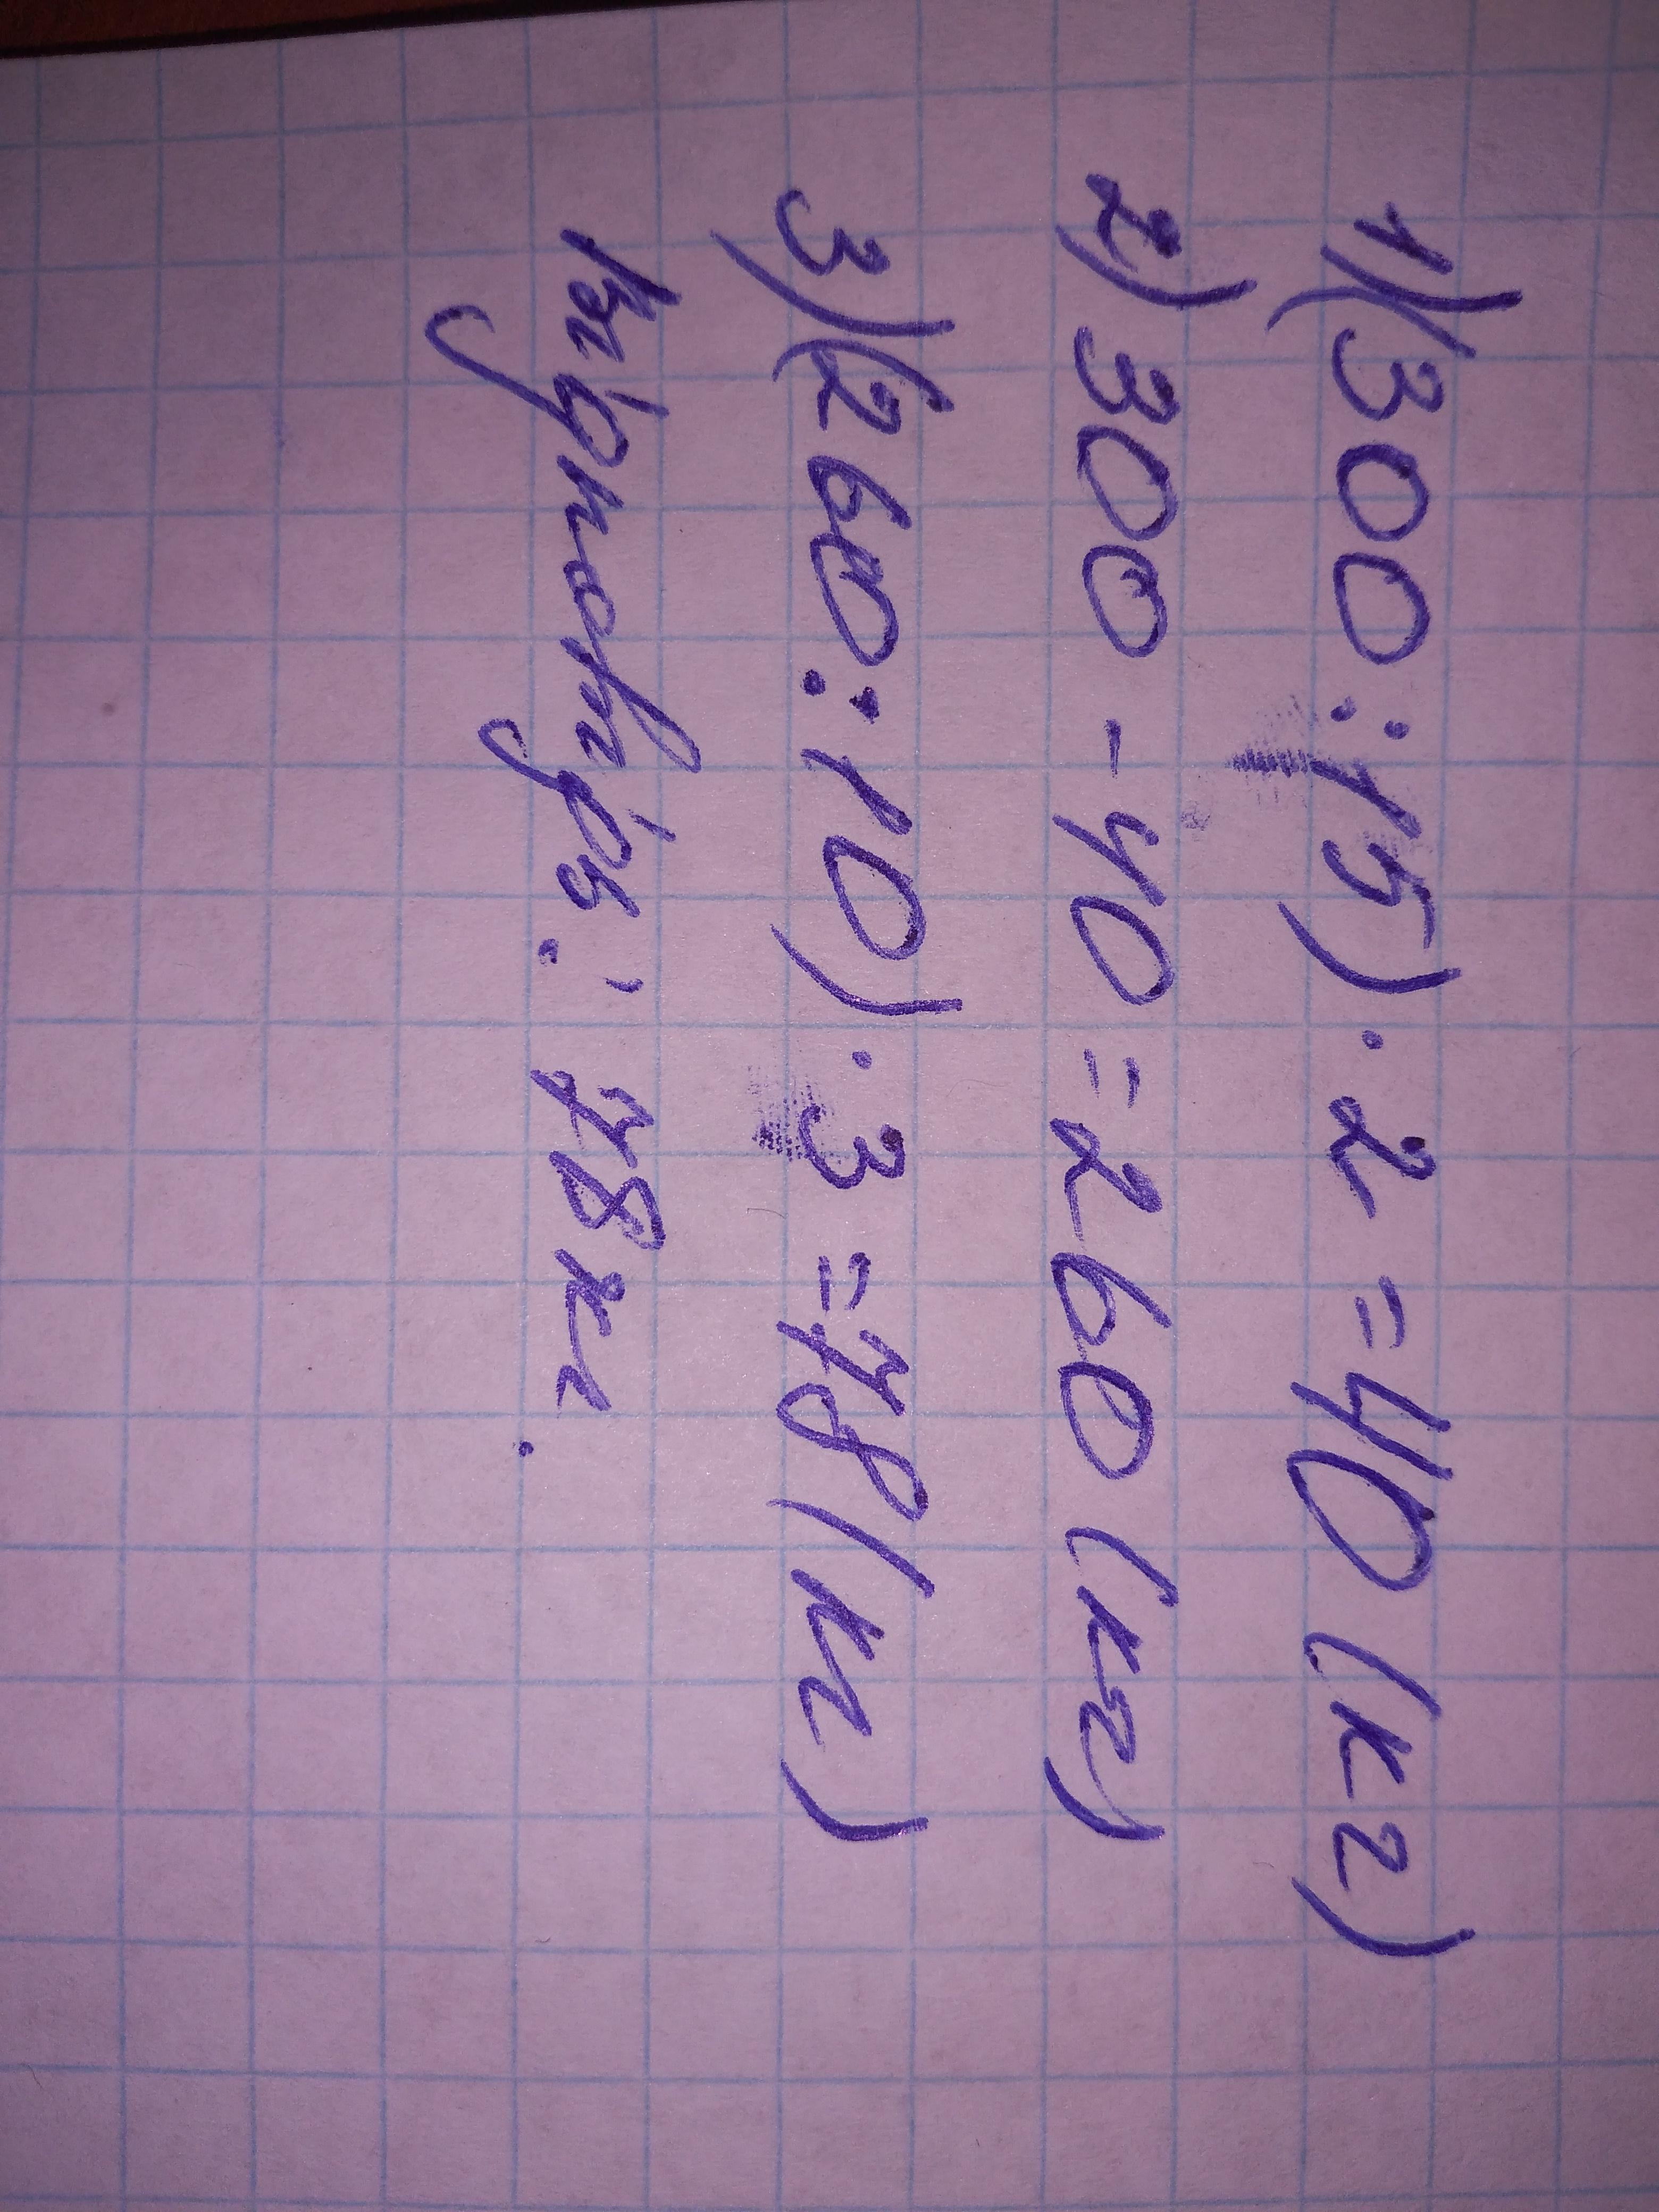 1)(300:15)·2=40(кг)
2)300-40=260(кг)
3)(260:10)·3=78(кг)
Відповідь: 78кг.